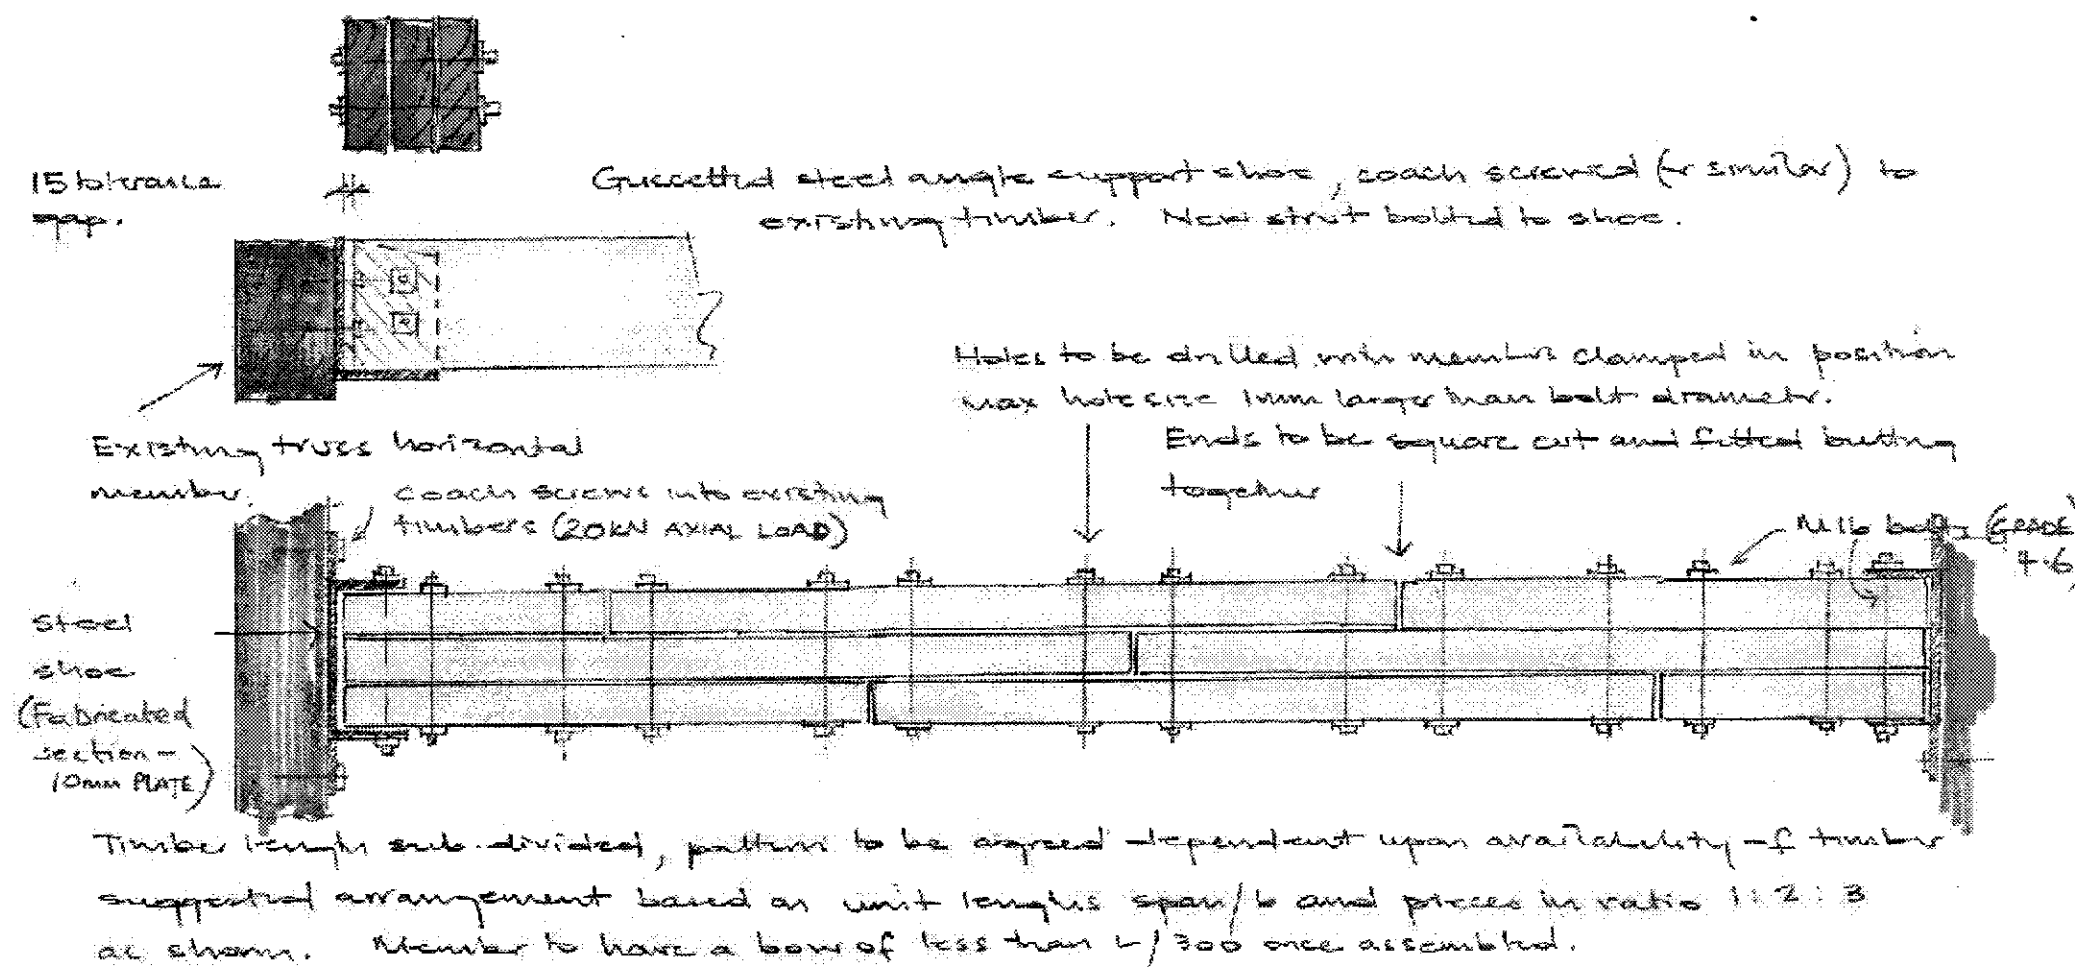 15 tolerance
gap.
Gussetted steel angle support shoe, coach screwed (or similar) to
existing timber. New strut bolted to shoe.
Holes to be drilled with members clamped in position
max hole size 1mm larger than bolt diameter.
Ends to be square cut and fitted butting
together
Existing truss horizontal
member.
coach screws into existing
timbers (20kN AXIAL LOAD)
M16 bolts (GRADE
4.6)
Steel
shoe
(Fabricated
section -
10mm PLATE)
Timber lengths sub-divided, pattern to be agreed dependent upon availability of timber
suggested arrangement based on unit lengths span/6 and pieces in ratio 1:2:3
as shown. Member to have a bow of less than L/300 once assembled.